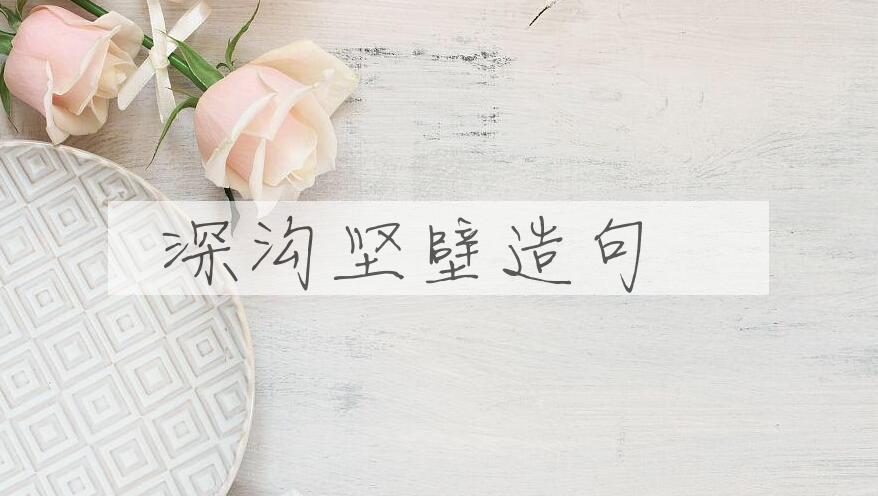 深沟坚壁造句